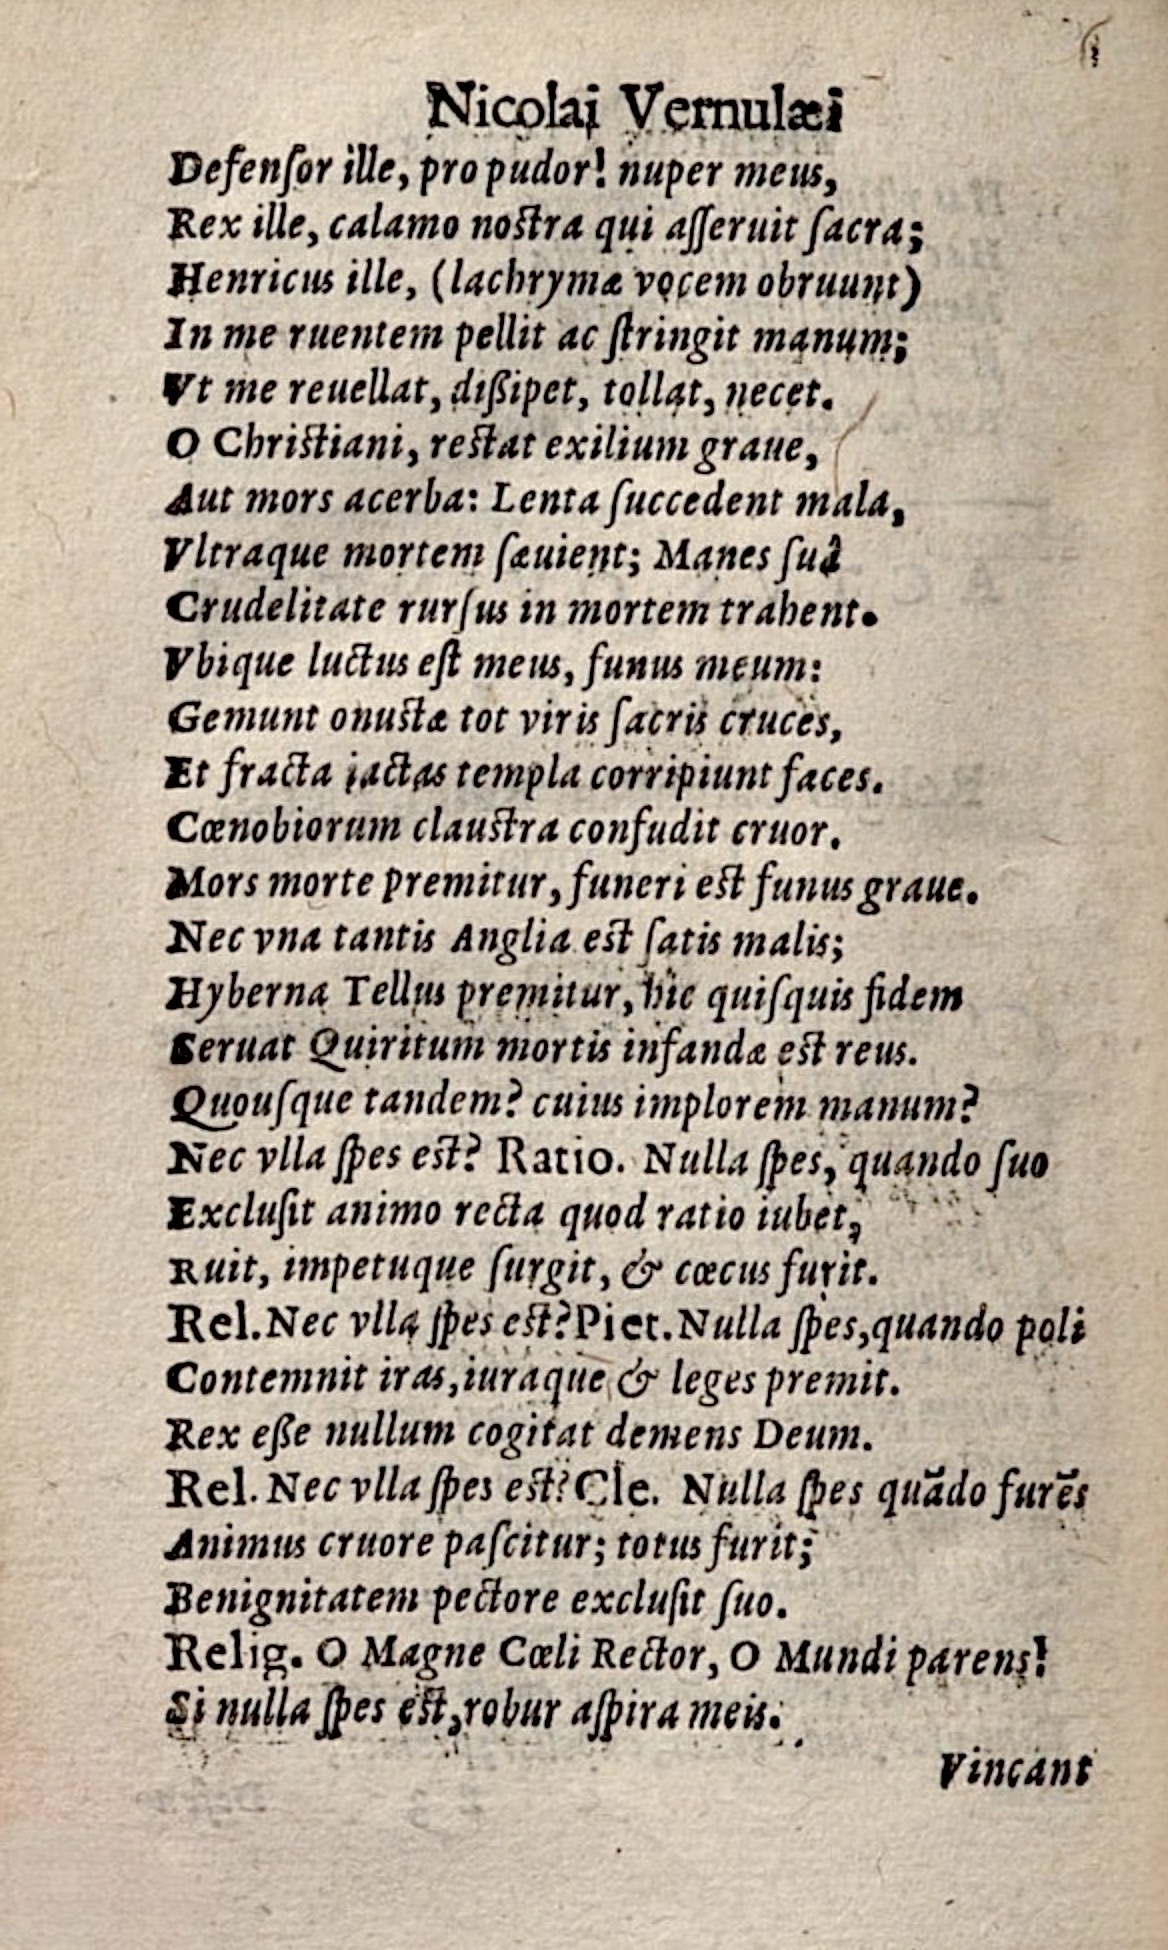 Nicolai Vernulæi
Defenſor ille, pro pudor! nuper meus,
Rex ille, calamo noſtra qui aſſeruit ſacra;
Henricus ille, (lachrymæ vocem obruunt)
In me ruentem pellit ac ſtringit manum;
Vt me reuellat, diſſipet, tollat, necet.
O Chriſtiani, reſtat exilium graue,
Aut mors acerba: Lenta ſuccedent mala,
Vltraque mortem ſæuient; Manes ſuâ
Crudelitate rurſus in mortem trahent.
Vbique luctus eſt meus, funus meum:
Gemunt onuſtæ tot viris ſacris cruces,
Et fracta iactas templa corripiunt faces.
Cœnobiorum clauſtra confudit cruor.
Mors morte premitur, funeri eſt funus graue.
Nec vna tantis Anglia eſt ſatis malis;
Hyberna Tellus premitur, hic quiſquis fidem
Seruat Quiritum mortis infandæ eſt reus.
Quouſque tandem? cuius implorem manum?
Nec vlla ſpes eſt? Ratio. Nulla ſpes, quando ſuo
Excluſit animo recta quod ratio iubet,
Ruit, impetuque ſurgit, & cœcus furit.
Rel. Nec vlla ſpes eſt? Piet. Nulla ſpes, quando poli
Contemnit iras, iuraque & leges premit.
Rex eſſe nullum cogitat demens Deum.
Rel. Nec vlla ſpes eſt? Cle. Nulla ſpes quãdo furẽs
Animus cruore paſcitur; totus furit;
Benignitatem pectore excluſit ſuo.
Relig. O Magne Cœli Rector, O Mundi parens!
Si nulla ſpes eſt, robur aſpira meis.
Vincant